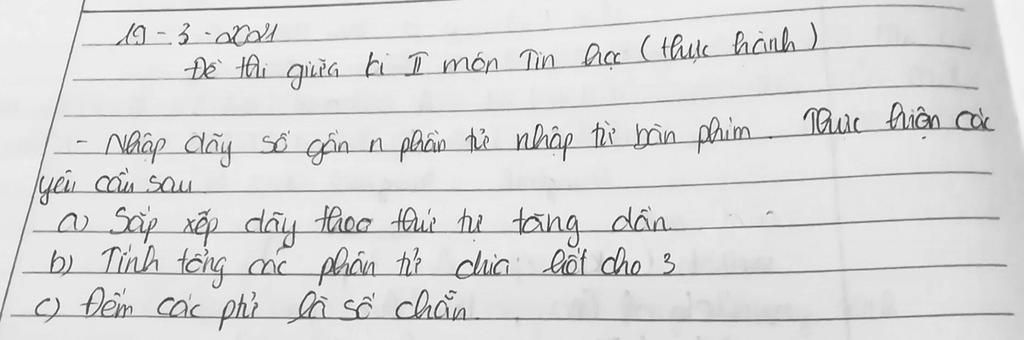 19 - 3 - 2021
Đề thi giữa kì II môn Tin học (thực hành)
- Nhập dãy số gồn n phần tử nhập từ bàn phím. Thực hiện các
yêu cầu sau
a) Sắp xếp dãy theo thứ tự tăng dần
b) Tính tổng các phần tử chia hết cho 3
c) Đếm các ptử là số chẵn.